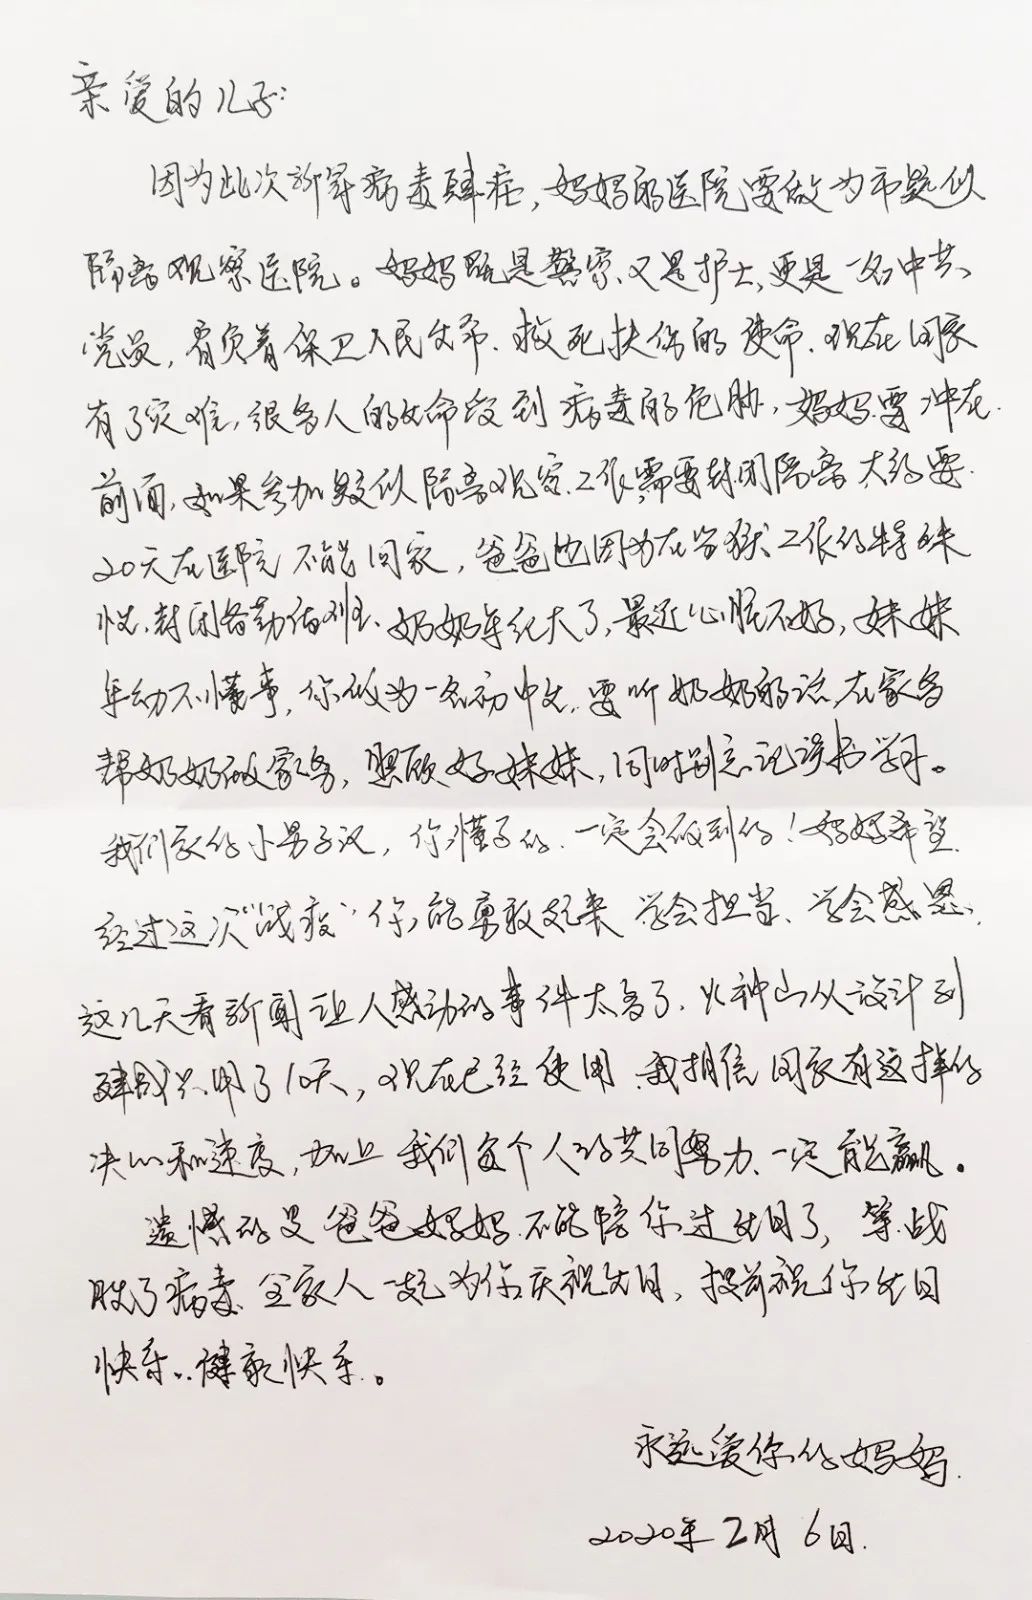 亲爱的儿子:
因为此次新冠病毒肆疟,妈妈的医院要做为市疑似
隔离观察医院。妈妈既是警察、又是护士、更是一名中共、
党员,肩负着保卫人民生命、救死扶伤的使命、现在国家
有了灾难,很多人的生命受到病毒的危胁,妈妈要冲在
前面,如果参加疑似隔离观察、工作需要封闭隔离大约要
20天在医院不能回家,爸爸也因为在监狱工作的特殊
性、封闭备勤值班、奶奶年纪大了,最近心脏不好,妹妹
年幼不懂事,你做为一名初中生,要听奶奶的话,在家多
帮奶奶做家务,照顾好妹妹,同时别忘记读书学习。
我们家的小男子汉,你懂了的、一定会做到的!妈妈希望
经过这次“战疫”你能勇敢起来学会担当、学会感恩、
这几天看新闻让人感动的事件太多了、火神山从设计到
建成只用了10天,现在已经使用、我相信国家有这样的
决心和速度,加上我们每个人的共同努力、一定能赢。
遗憾的是爸爸妈妈不能陪你过生日了,等战
胜了病毒、全家人一起为你庆祝生日,提前祝你生日
快乐..健康快乐。
永远爱你的妈妈
2020年2月6日.